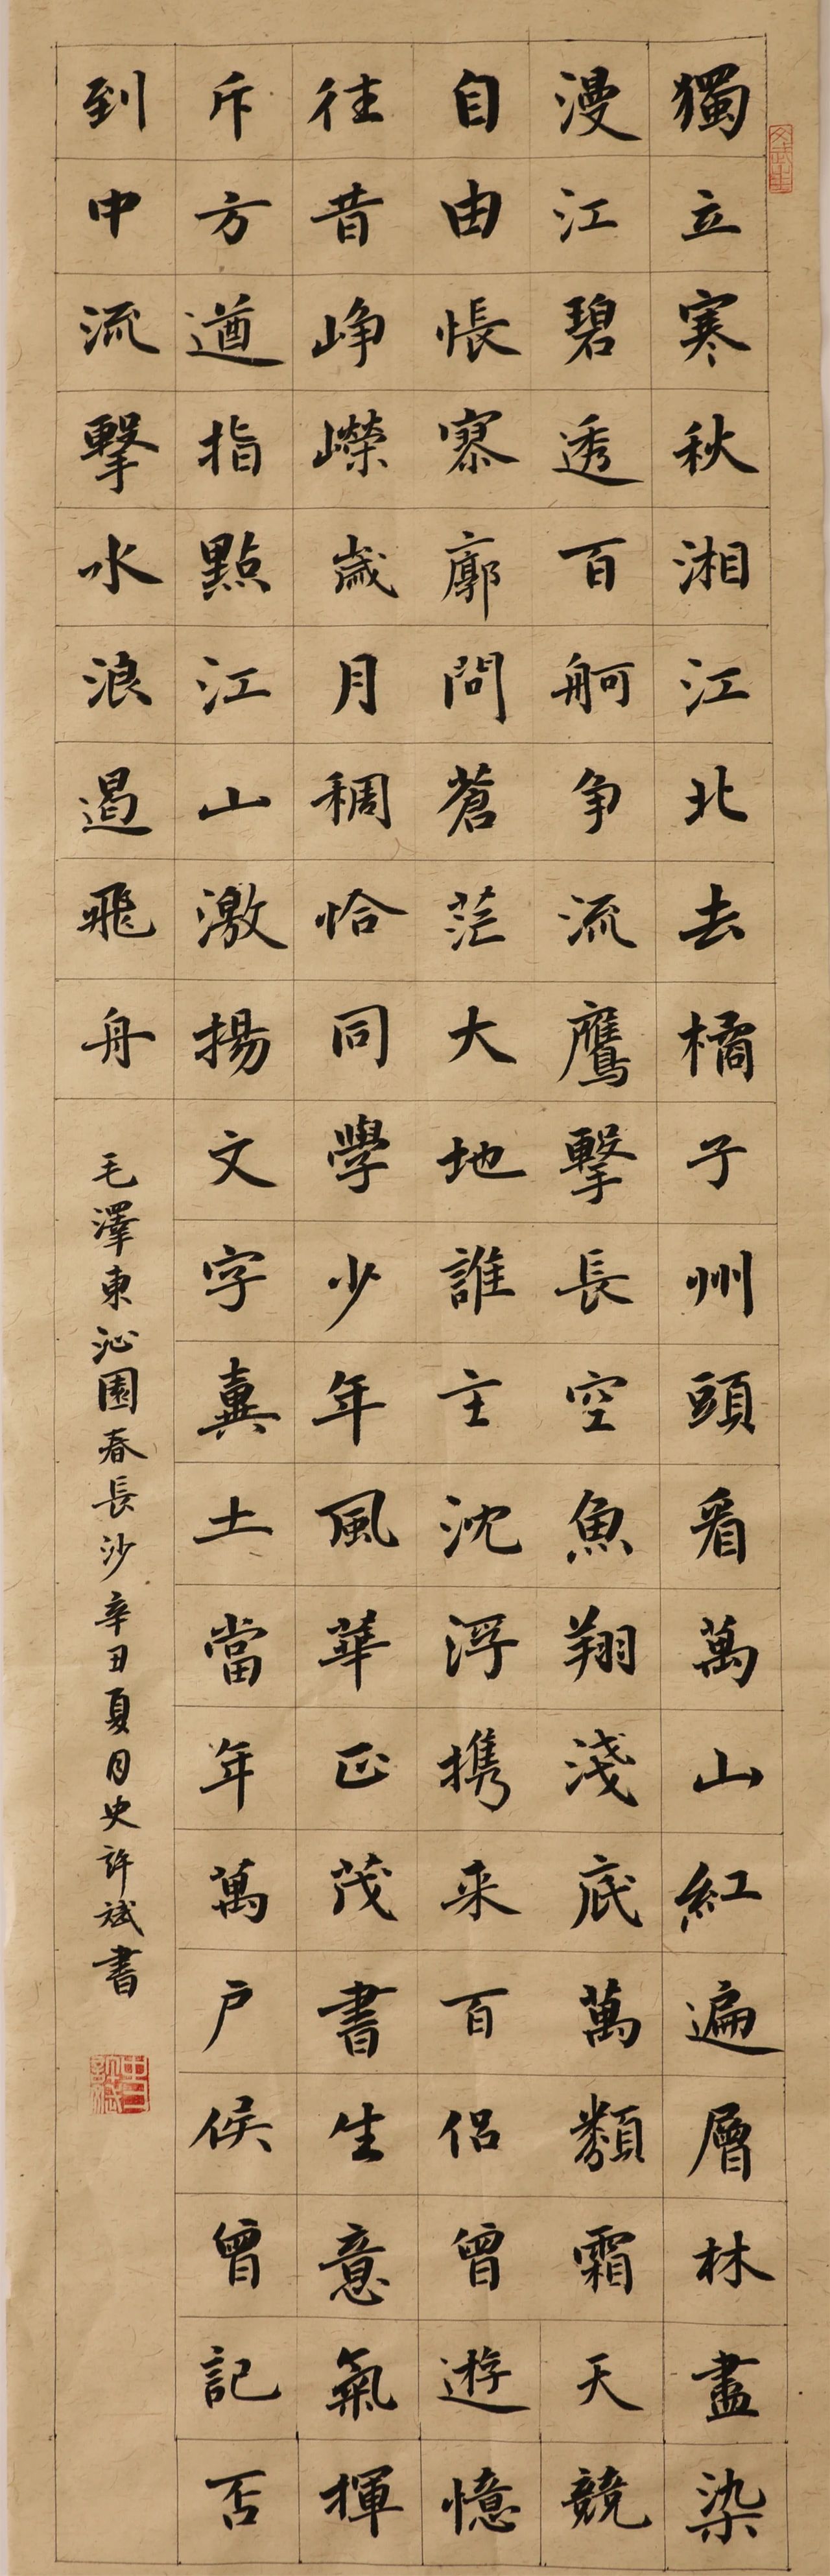 獨立寒秋湘江北去橘子州頭看萬山紅遍層林盡染
漫江碧透百舸争流鷹擊長空魚翔淺底萬類霜天競
自由悵寥廓問蒼茫大地誰主沈浮携来百侣曾遊憶
往昔峥嶸歲月稠恰同學少年風華正茂書生意氣揮
斥方遒指點江山激揚文字糞土當年萬户侯曾記否
到中流擊水浪遏飛舟
毛澤東沁園春長沙辛丑夏日史許斌書